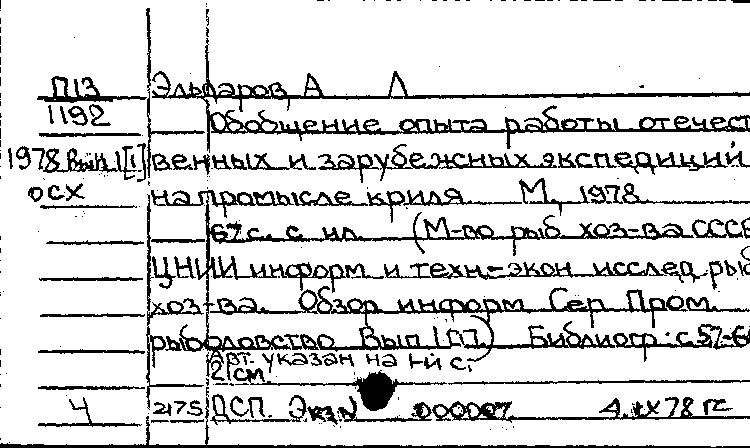 П13 Эльдаров, А Л
1192 Обобщение опыта работы отечест
1978 Вып 1[1] венных и зарубежных экспедиций
ОСХ на промысле криля М, 1978
67 с. с ил (М-во рыб хоз-ва СССР
ЦНИИ информ и техн-экон исслед рыб
хоз-ва. Обзор информ Сер Пром.
рыболовство Вып 1 Библиогр: с 57-6
Авт. указан на 1-й с.
21см.
4 2175 ДСП. Экз N 000007 4. IX 78